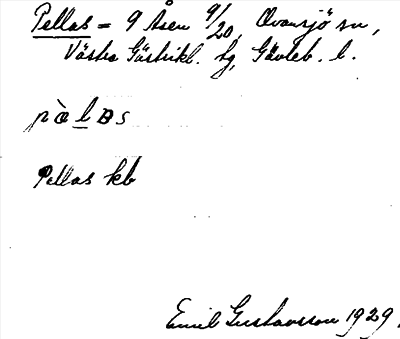 Pellas = 9 Åsen 9/20, Ovansjö sn,
Västra Gästrikl. hg, Gävleb. l.
pæ̀l̲ɒs
Pellas kb
Emil Gustavsson 1929.